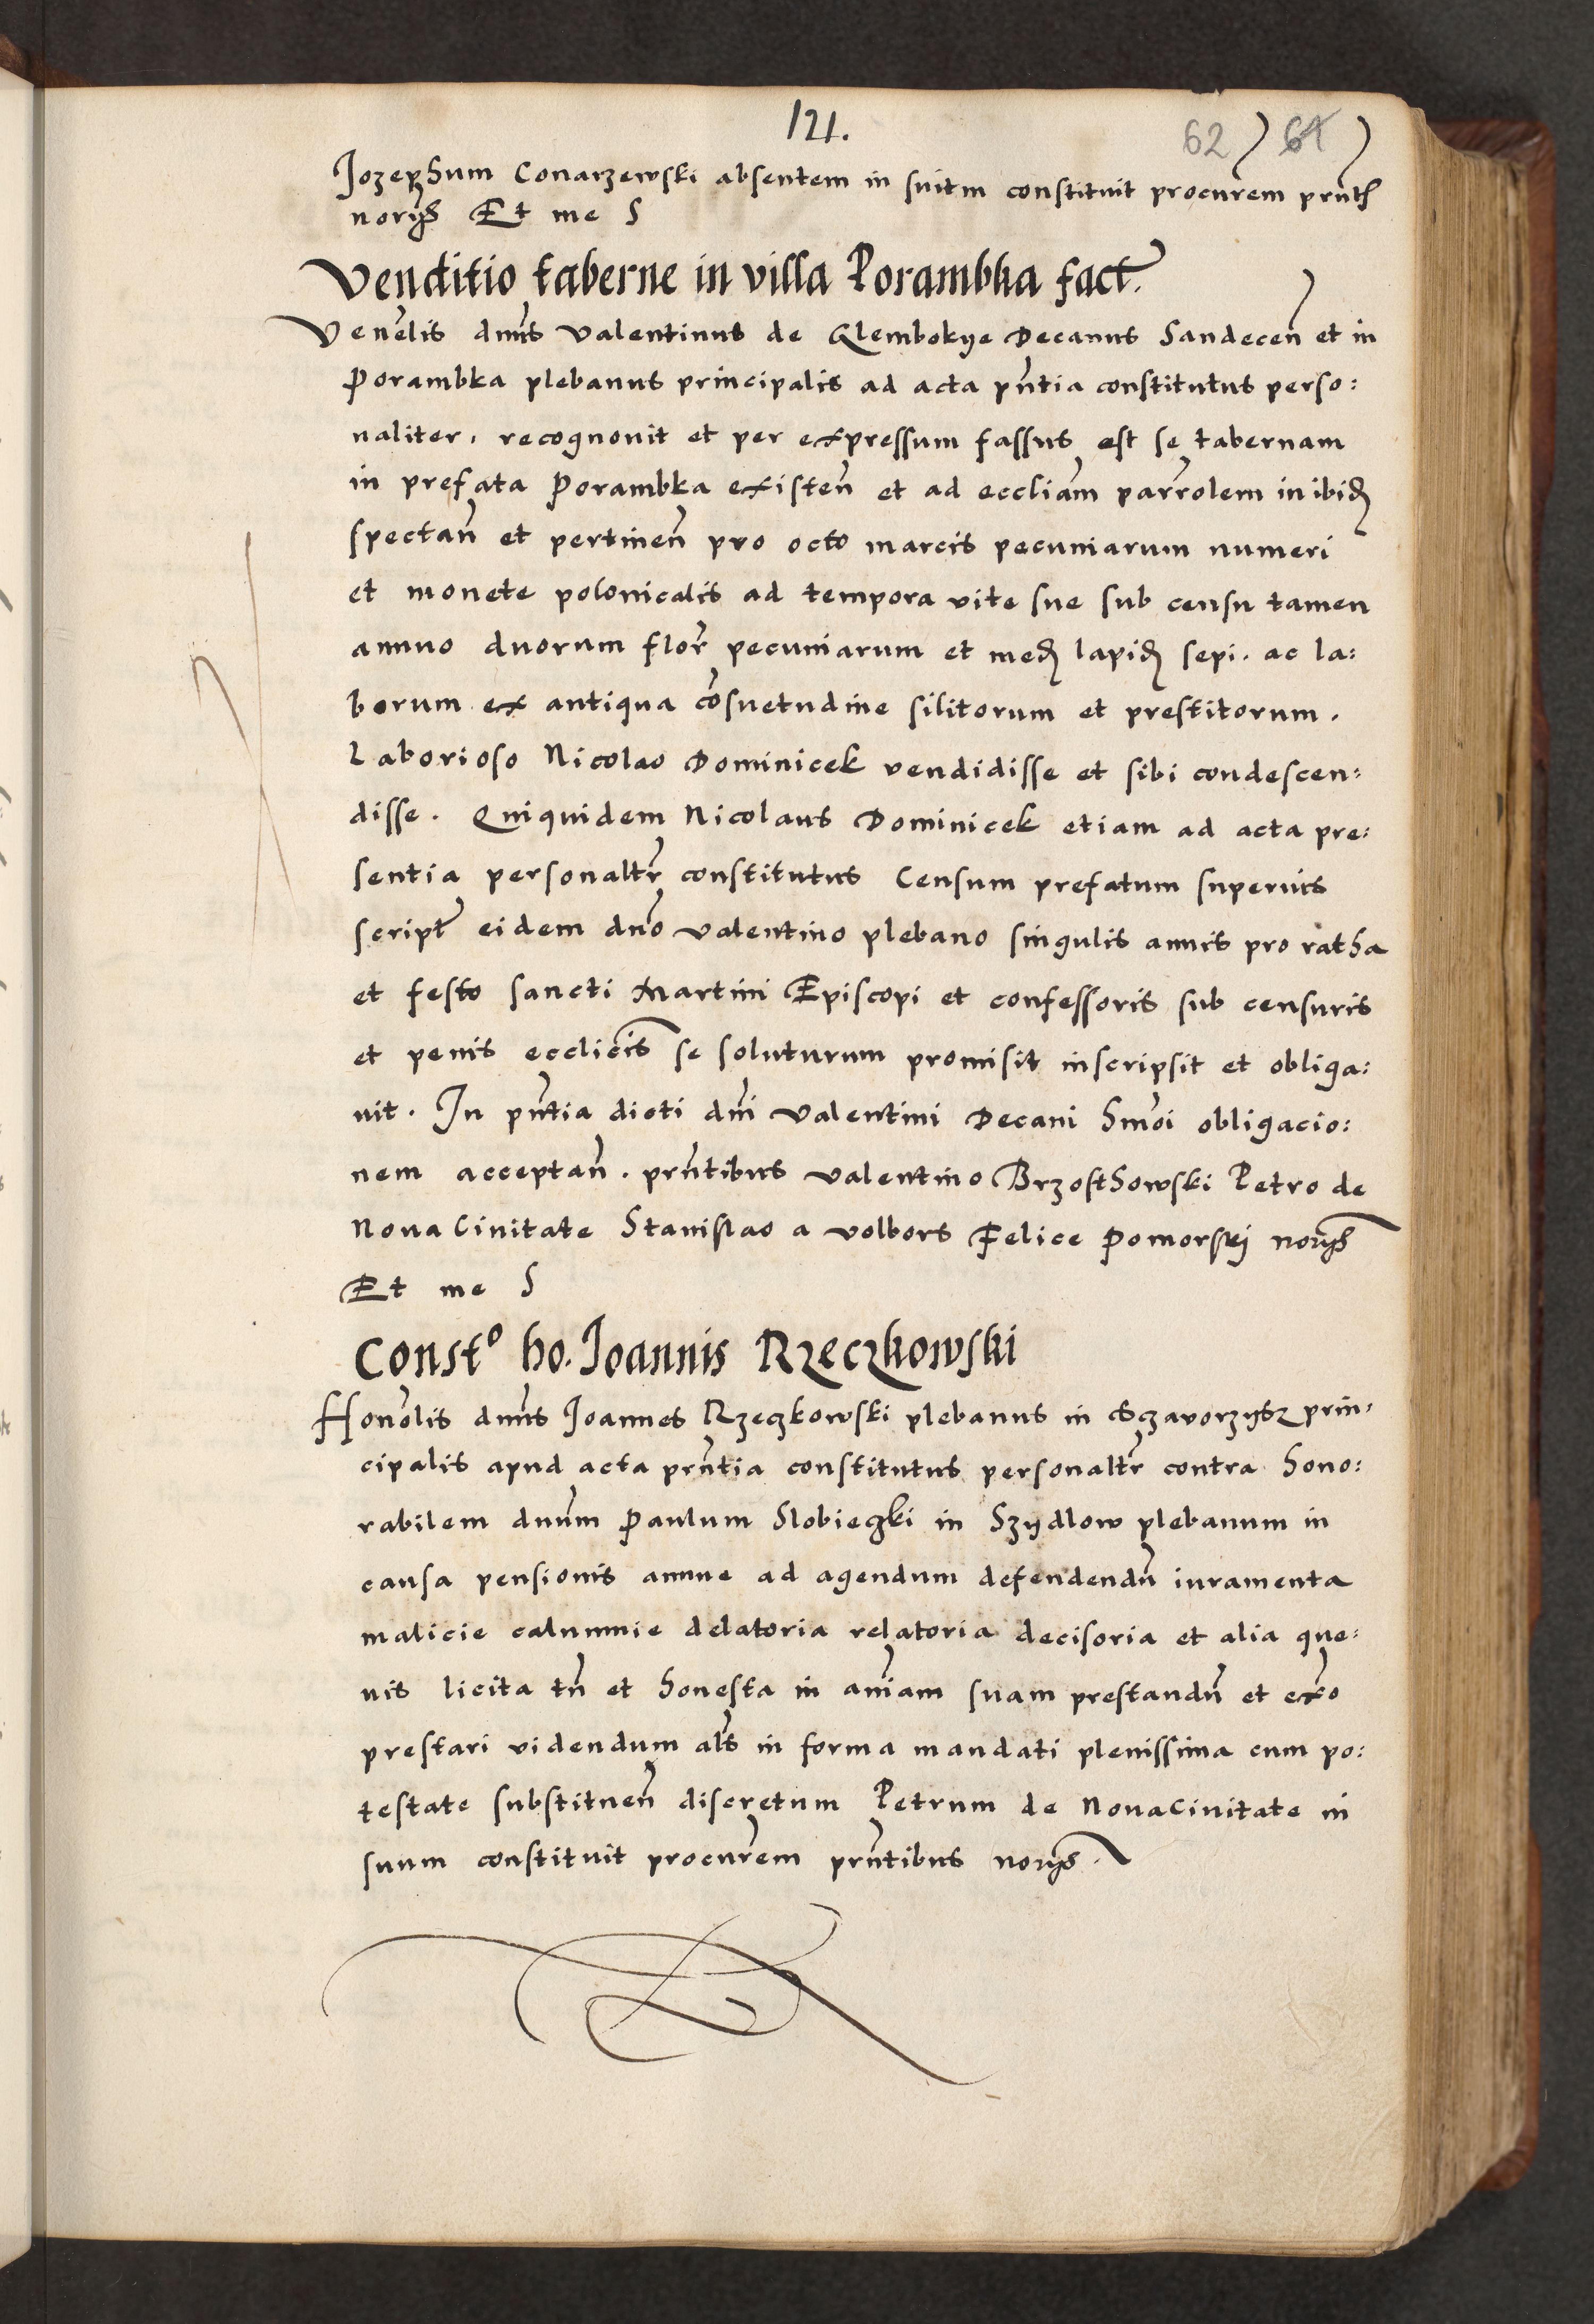 121.
62 61
Jozephum Conarzewski absentem in suum constituit procurem prnth
norijs Et me S
Venditio taberne in villa Porambka fact.
Venelis dnus Valentinus de Glembokye Decanus Sandecen et in
Porambka plebanus principalis ad acta pntia constitutus perso:
naliter, recognouit et per expressum fassus est se tabernam
in prefata Porambka existen et ad eccliam parrolem in ibid
spectan et pertinen pro octo marcis pecuniarum numeri
et monete polonicalis ad tempora vite sue sub censu tamen
annuo duorum flor pecuniarum et med lapid sepi. ac la:
borum ex antiqua cosuetudine silitorum et prestitorum.
Laborioso Nicolao Dominicek vendidisse et sibi condescen:
disse. Quiquidem Nicolaus Dominicek etiam ad acta pre:
sentia personaltr constitutus Censum prefatum superius
script eidem dno Valentino plebano singulis annis pro ratha
et festo sancti Martini Episcopi et confessoris sub censuris
et penis ecclicis se soluturum promisit inscripsit et obliga:
uit. In pntia dicti dni Valentini Decani hmoi obligacio:
nem acceptan. prntibus Valentino Brzosthowski Petro de
Noua Ciuitate Stanislao a Volbors Felice Pomorskij norijs
Et me S
Const° ho. Joannis Rzeczkowski
Honolis dnus Joannes Rzeczkowski plebanus in prin:
cipalis apud acta prntia constitutus personaltr contra hono:
rabilem dnum Paulum Slobieczki in Szydlow plebanum in
causa pensionis annue ad agendum defendendu iuramenta
malicie calumnie delatoria relatoria decisoria et alia que:
uis licita tn et honesta in aniam suam prestandu et exo
prestari videndum als in forma mandati plenissima cum po:
testate substituen discretum Petrum de Noua Ciuitate in
suum constituit procurem prntibus norijs.